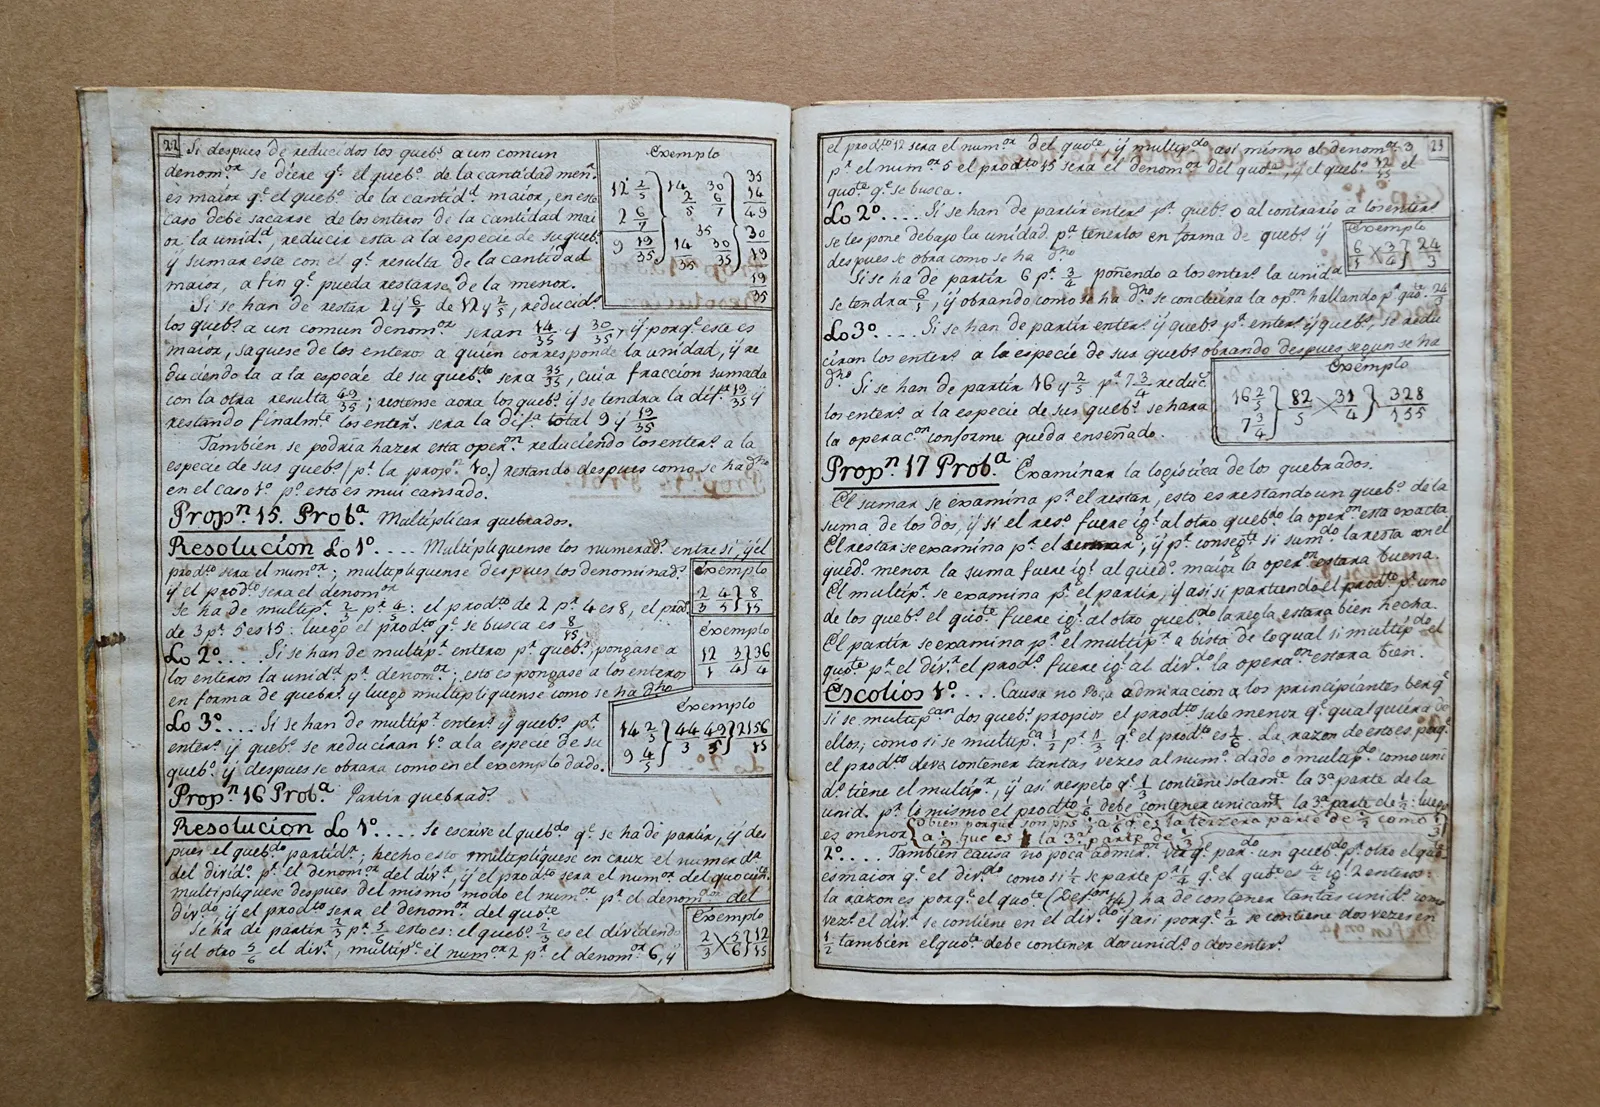 22
Si despues de reducidos los queb.s a un comun
denom.or se viere q.e el queb.o de la cantidad men.r
es maior q.e el queb.o de la cantid.d maior, en este
caso debe sacarse de los enteros de la cantidad mai
or la unid.d, reducir esta a la especie de su queb.o
y sumar este con el q.e resulta de la cantidad
maior, a fin q.e pueda restarse de la menor.
Exemplo
12 2/5 } 14/5 30/7 } 35
2 6/7 35 14
9 19/35 14/35 30/35 49
30
19
19
35
Si se han de restar 2 y 6/7 de 12 y 2/5, reducid.s
los queb.s a un comun denom.or seran 14/35 y 30/35, y porq.e este es
maior, saquese de los enteros a quien corresponde la unidad, y re
duciendola a la especie de su queb.do sera 35/35, cuia fraccion sumada
con la otra resulta 49/35; restense aora los queb.s y se tendra la dif.a 19/35 y
restando finalm.te los enter.s sera la dif.a total 9 y 19/35
Tambien se podria hazer esta oper.on reduciendo los enter.s a la
especie de sus queb.s (p.r la prop.n 10.) restando despues como se ha d.ho
en el caso 1.o p.o esto es mui cansado.
Prop.n 15. Prob.a Multiplicar quebrados.
Resolucion Lo 1.o .... Multipliquense los numerad.s entre si, y el
prod.to sera el num.or; multipliquense despues los denominad.s
y el prod.to sera el denom.or
Exemplo
2/3 4/5 } 8/15
se ha de multip.r 2/3 p.r 4/5: el prod.to de 2 p.r 4 es 8, el prod.
de 3 p.r 5 es 15: luego el prod.to q.e se busca es 8/15
Lo 2.o .... Si se han de multip.r enteros p.r queb.s, pongase a
los enteros la unid.d p.r denom.or; esto es pongase a los enteros
en forma de quebr. y luego multipliquense como se ha d.ho
Exemplo
12/1 3/4 } 36/4
Lo 3.o .... Si se han de multip.r enter.s y queb.s p.r
enter.s y queb.s se reduciran 1.o a la especie de su
queb.o y despues se obrara como en el exemplo dado.
Exemplo
14 2/3 } 44/3 49/5 } 2156/15
9 4/5
Prop.n 16 Prob.a Partir quebrad.s
Resolucion Lo 1.o .... Se escrive el queb.do q.e se ha de partir, y des
pues el queb.do partid.r; hecho esto multipliquese en cruz el numer.or
del divid.o p.r el denom.or del div.r y el prod.to sera el num.or del quocien.te
multipliquese despues del mismo modo el num.or p.r el denom.or del
div.do y el prod.to sera el denom.or del quo.te
Se ha de partir 2/3 p.r 5/6 esto es: el queb.o 2/3 es el dividendo
y el otro 5/6 el div.r, multip.se el num.or 2 p.r el denom.or 6, y
Exemplo
2/3 × 5/6 } 12/15
23
el prod.to 12 sera el num.or del quo.te, y multip.do asi mismo el denom.or 3
p.r el num.or 5 el prod.to 15 sera el denom.or del quo.te, y el queb.o 12/15 el
quo.te q.e se busca.
Lo 2.o .... Si se han de partir enter.s p.r queb.s o al contrario a los enter.s
se les pone debajo la unidad p.a tenerlos en forma de queb.s y
despues se obra como se ha d.ho
Exemplo
6/1 × 3/4 } 24/3
Si se ha de partir 6 p.r 3/4 poniendo a los enter.s la unida
se tendra 6/1, y obrando como se ha d.ho se concluira la op.on hallando p.r quo.te 24/3
Lo 3.o .... Si se han de partir enter.s y queb.s p.r enter.s y queb.s, se redu
ciran los enter.s a la especie de sus queb.s obrando despues segun se ha
d.ho Si se han de partir 16 y 2/5 p.r 7 3/4 reduc.s
los enter.s a la especie de sus queb.s se hara
la operac.on conforme queda enseñado.
Exemplo
16 2/5 } 82/5 × 31/4 } 328/155
7 3/4
Prop.n 17 Prob.a Examinar la logistica de los quebrados.
El sumar se examina p.r el restar, esto es restando un queb.o de la
suma de los dos, y si el res.o fuere ig.l al otro queb.do la oper.on esta exacta.
El restar se examina p.r el sumar; y p.r conseg.te si sum.do la resta con el
queb.o menor la suma fuere ig.l al queb.o maior la oper.on estara buena.
El multip.r se examina p.r el partir, y asi si partiendo el prod.to p.r uno
de los queb.s el quo.te fuere ig.l al otro queb.do la regla estara bien hecha.
El partir se examina p.r el multip.r a bista de lo qual si multip.do el
quo.te p.r el div.r el prod.to fuere ig.l al div.do la opera.on estara bien.
Escolios 1.o .... Causa no poca admiracion a los principiantes ber q.e
si se multiplican dos queb.s propios el prod.to sale menor q.e qualquiera de
ellos; como si se multip.ca 1/2 p.r 1/3 q.e el prod.to es 1/6. La razon de esto es, porq.e
el prod.to deve contener tantas vezes al num.o dado o multip.do como uni
d.s tiene el multip.r, y asi respeto q.e 1/3 contiene solam.te la 3.a parte de la
unid. p.r lo mismo el prod.to 1/6 debe contener unicam.te la 3.a parte de 1/2: luego
es menor { bien porque son pps 1 a 1/6 es la terzera parte de 1/2 como 1/3
a 1, que es la 3.a parte de
2.o .... Tambien causa no poca admir.on ver q.e par.do un queb.do p.r otro el quo.te
es maior q.e el div.do como si 1/2 se parte p.r 1/4 q.e el quo.te es 4/2 ig.l 2 enteros:
la razon es porq.e el quo.te (Def.on 14) ha de contener tantas unid.s como
vez.s el div.r se contiene en el div.do y asi porq.e 1/4 se contiene dos vezes en
1/2 tambien el quo.te debe contener dos unid.s o dos enter.s